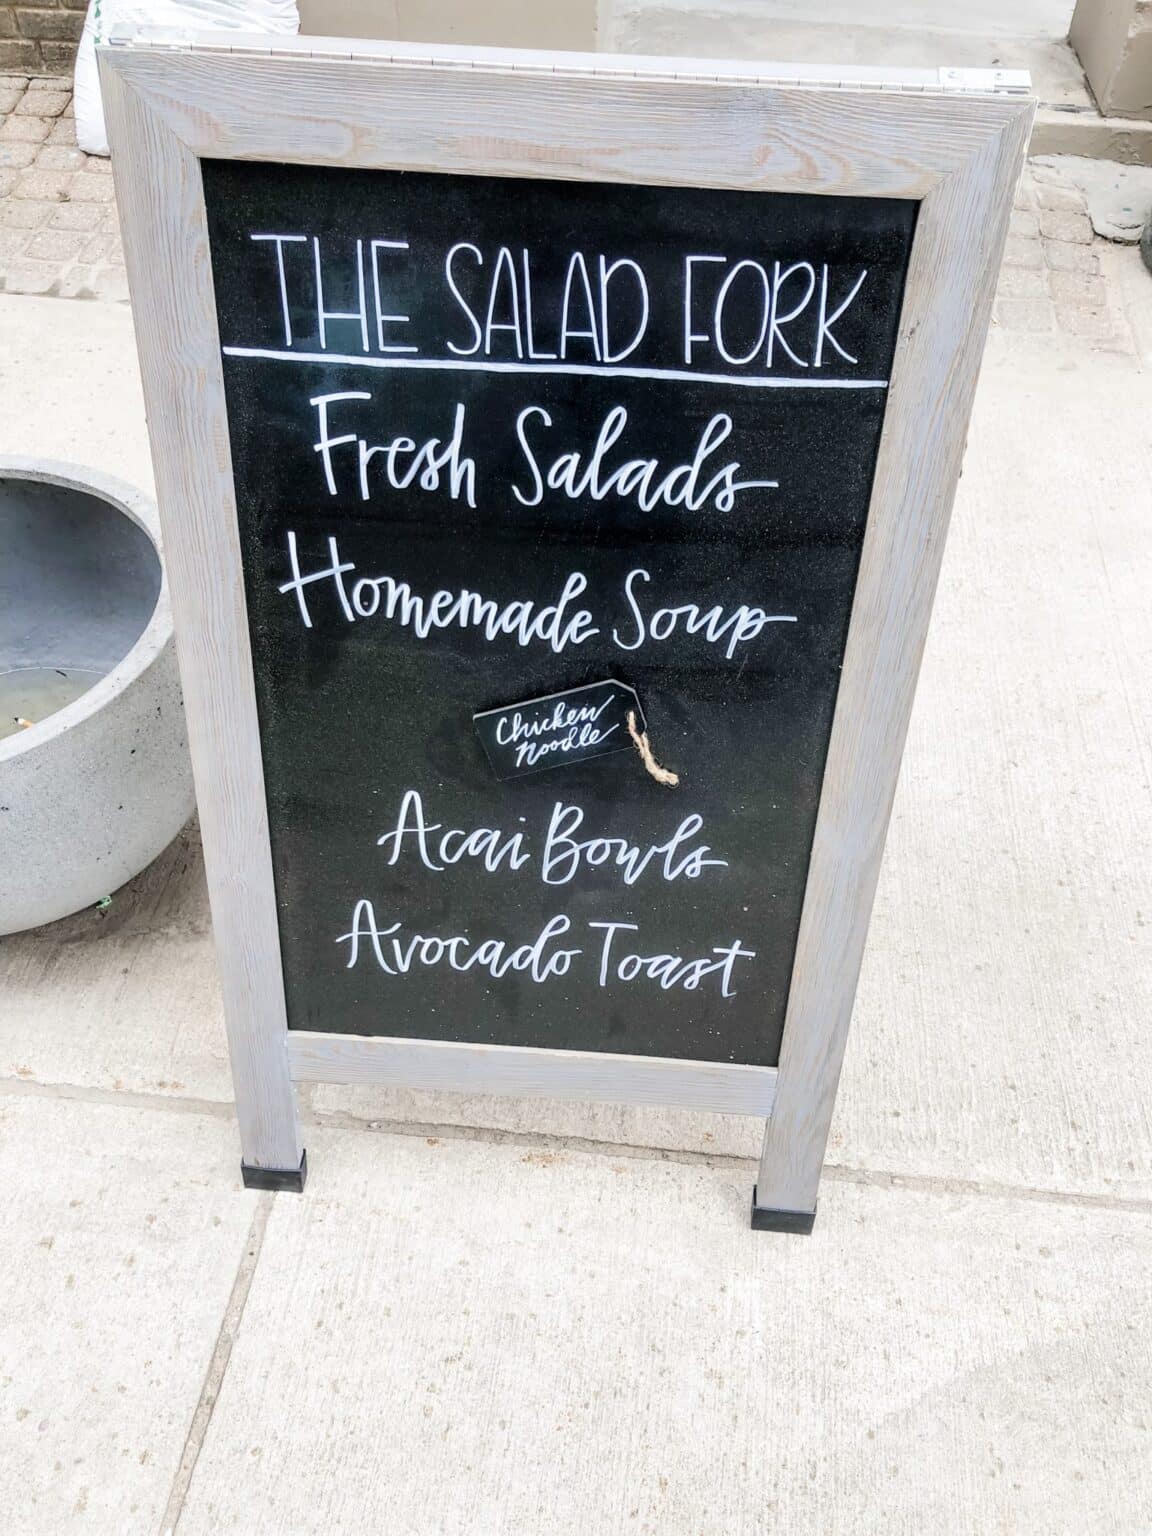 THE SALAD FORK
Fresh Salads
Homemade Soup
Chicken
Noodle
Acai Bowls
Avocado Toast